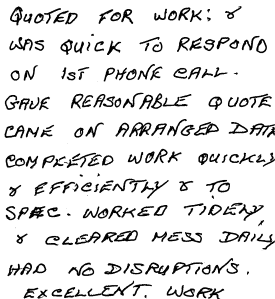 QUOTED FOR WORK; &
WAS QUICK TO RESPOND
ON 1ST PHONE CALL.
GAVE REASONABLE QUOTE
CAME ON ARRANGED DATE
COMPLETED WORK QUICKLY
& EFFICIENTLY & TO
SPEC. WORKED TIDELY
& CLEARED MESS DAILY
HAD NO DISRUPTIONS.
EXCELLENT. WORK